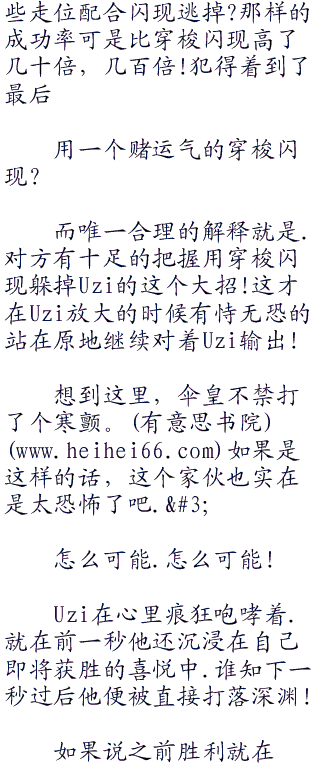 些走位配合闪现逃掉?那样的
成功率可是比穿梭闪现高了
几十倍，几百倍!犯得着到了
最后
用一个赌运气的穿梭闪
现?
而唯一合理的解释就是.
对方有十足的把握用穿梭闪
现躲掉Uzi的这个大招!这才
在Uzi放大的时候有恃无恐的
站在原地继续对着Uzi输出!
想到这里，伞皇不禁打
了个寒颤。(有意思书院)
(www.heihei66.com)如果是
这样的话，这个家伙也实在
是太恐怖了吧.&#3;
怎么可能.怎么可能!
Uzi在心里痕狂咆哮着.
就在前一秒他还沉浸在自己
即将获胜的喜悦中.谁知下一
秒过后他便被直接打落深渊!
如果说之前胜利就在